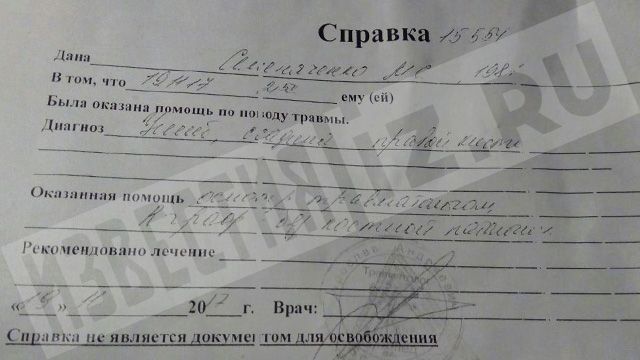 Справка 15554
Дана М.С., 198
В том, что 19.11.17 ему (ей)
Была оказана помощь по поводу травмы.
Диагноз Ушиб, ссадина правой кисти
Оказанная помощь осмотр травматологом,
R граф - без костной патолог.
Рекомендовано лечение
«19» 11 2017 г. Врач:
Справка не является документом для освобождения
ИЗВЕСТИЯ IZ.RU